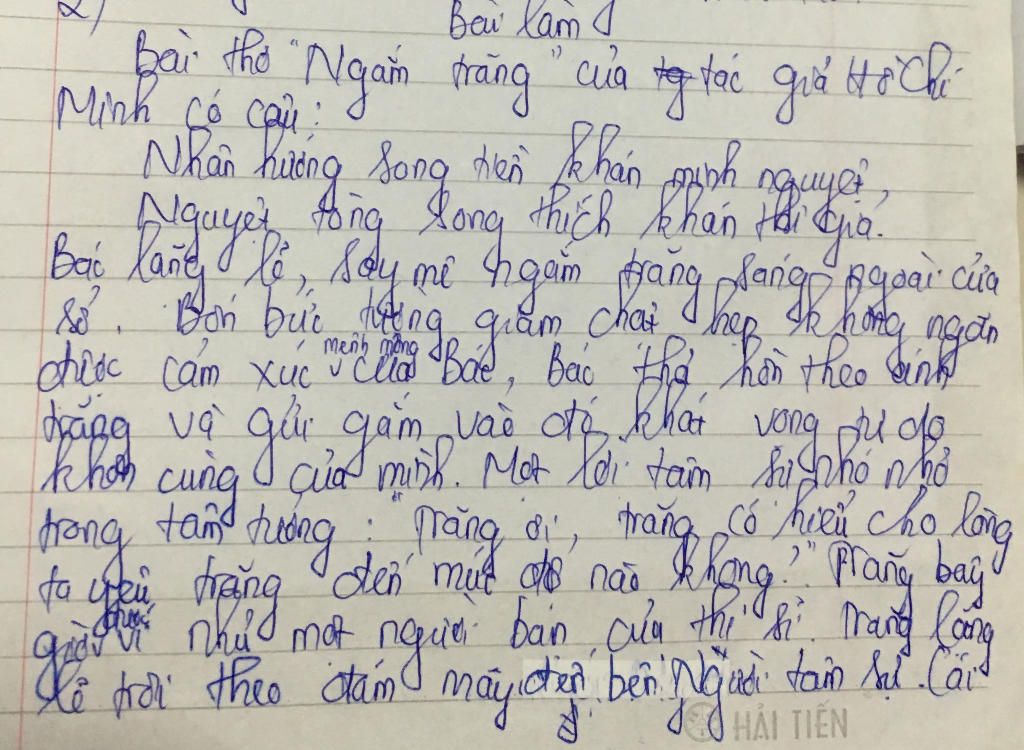 2)
Bài làm
Bài thơ "Ngắm trăng" của tác giả Hồ Chí
Minh có câu:
Nhân hướng song tiền khán minh nguyệt,
Nguyệt tòng song thích khán thi gia.
Bác lặng lẽ, say mê ngắm trăng sáng ngoài cửa
sổ. Bốn bức tường giam chật hẹp không ngăn
được cảm xúc mênh mông của Bác, Bác thả hồn theo ánh
trăng và gửi gắm vào đó khát vọng tự do
khôn cùng của mình. Một lời tâm sự nho nhỏ
trong tâm tưởng: "Trăng ơi, trăng có hiểu cho lòng
ta yêu trăng đến mức độ nào không?" Trăng bây
giờ được ví như một người bạn của thi sĩ. Trăng lặng
lẽ trôi theo đám mây đến bên Người tâm sự. Cái
HẢI TIẾN